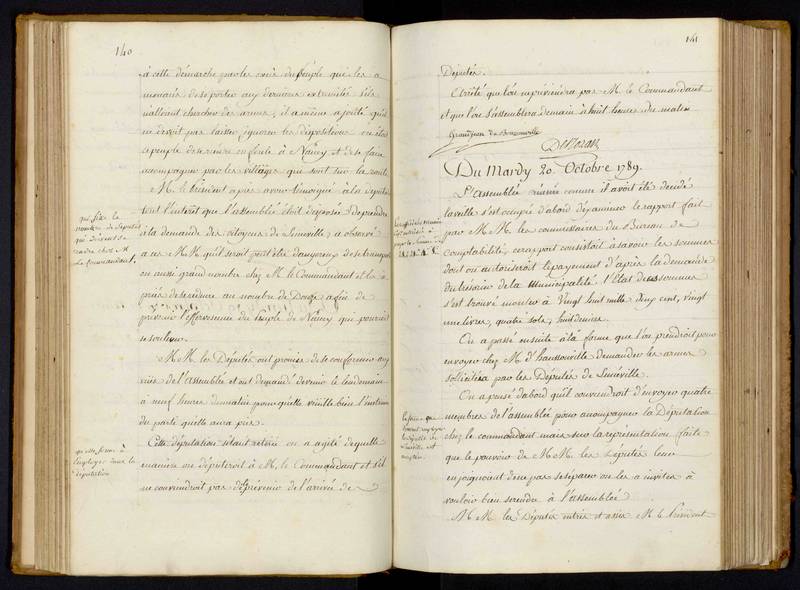 140
à cette démarche par les cris du peuple qui les a
menacés de se porter aux dernières extremités s'ils
n'alloient chercher des armes; il a même ajouté qu'il
ne devoit pas laisser ignorer les dispositions où étoit
le peuple de se rendre en foule à Nancy et de se faire
accompagner par les villages qui sont sur la route
M. le Président après avoir témoigné à la députation
tout l'interêt que l'assemblée étoit disposée de prendre
à la demande des citoyens de Lunéville, a observé
a ces M.M. qu'il seroit peut être dangereux de se transporter
en aussi grand nombre chez M. le Commandant et les a
priés de se réduire au nombre de Douze afin de
prévenir l'effervescence du peuple de Nancy qui pourroit
se soulever.
M.M. les Députés ont promis de se conformer aux
vues de l'assemblée et ont demandé de venir le lendemain
à neuf heures du matin pour qu'elle veuille bien l'instruire
du parti qu'elle aura pris.
Cette députation s'étant retirée on a agité de quelle
maniere on députeroit à M. le Commandant et s'il
ne conviendroit pas de prévenir de l'arrivée de
qui fixe le
nombre de Députés
qui doivent se
rendre chez M.
le Commandant.
qui est
employer pour la
députation
141
Députés.
Arrêté que l'on en préviendra pas M. le Commandant
et que l'on s'assemblera demain à huit heures du matin
Grandjean de Bouzanville
Du Mardy 20. Octobre 1789.
L'Assemblée réunie comme il avoit été décidé
la veille s'est occupé d'abord d'examiner le rapport fait
par M.M. les commissaires du Bureau de
comptabilité, ce rapport consistoit à savoir les sommes
dont on autoriseroit le payement d'après la demande
du trésorier de la municipalité. L'Etat des sommes
s'est trouvé monter à Vingt huit mille deux cent, vingt
une livres, quatre sols, huit deniers.
On a passé ensuite à la forme que l'on prendroit pour
envoyer chez M. d'haussonville demander les armes
sollicitées par les Députés de Lunéville.
On a pensé d'abord qu'il conviendroit d'envoyer quatre
membres de l'assemblée pour accompagner la Députation
chez le commandant mais sur la représentation faite
que le pouvoir de M.M. les députés leur
enjoignoient de ne pas se séparer on les a invités à
vouloir bien se rendre à l'assemblée
M.M. les Députés entrés et assis M. le Président